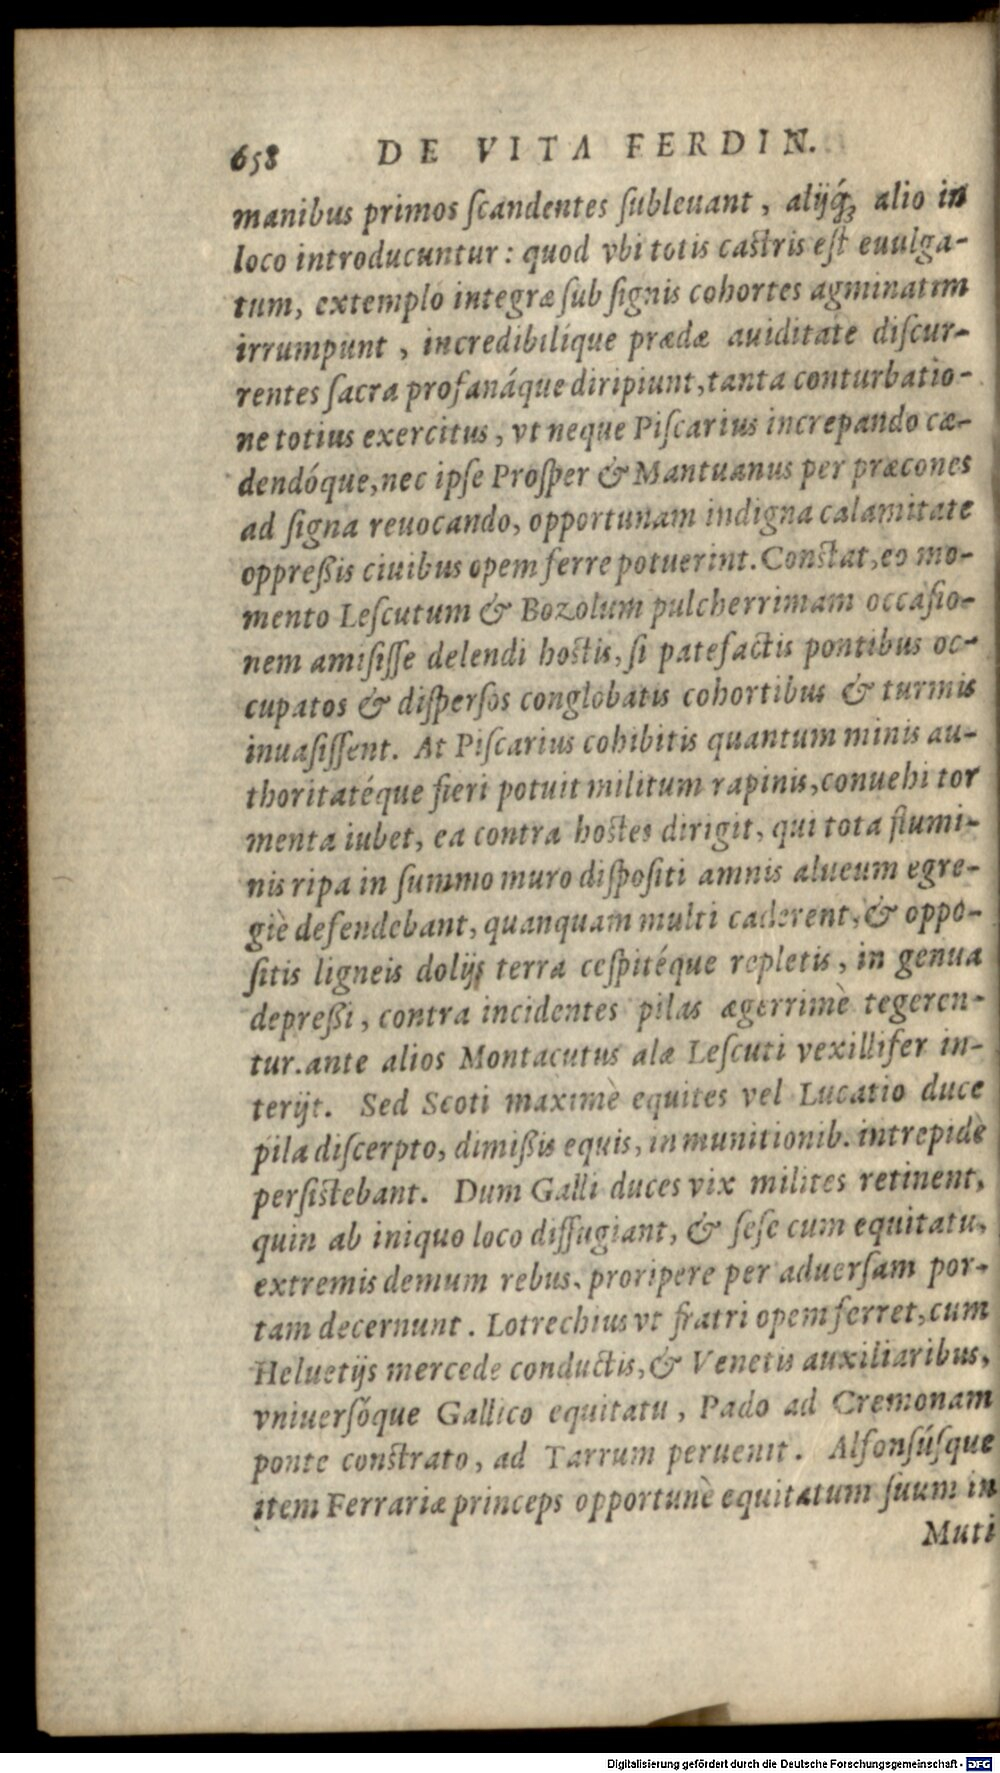 658 DE VITA FERDIN.
manibus primos ſcandentes ſubleuant, alijq́; alio in
loco introducuntur: quod vbi totis caſtris eſt euulga-
tum, extemplo integræ ſub ſignis cohortes agminatim
irrumpunt, incredibilíque prædæ auiditate diſcur-
rentes ſacra profanáque diripiunt, tanta conturbatio-
ne totius exercitus, vt neque Piſcarius increpando cæ-
dendóque, nec ipſe Proſper & Mantuanus per præcones
ad ſigna reuocando, opportunam indigna calamitate
oppreßis ciuibus opem ferre potuerint. Conſtat, eo mo-
mento Leſcutum & Bozolum pulcherrimam occaſio-
nem amiſiſſe delendi hoſtis, ſi patefactis pontibus oc-
cupatos & diſperſos conglobatis cohortibus & turmis
inuaſiſſent. At Piſcarius cohibitis quantum minis au-
thoritatéque fieri potuit militum rapinis, conuehi tor
menta iubet, ea contra hoſtes dirigit, qui tota flumi-
nis ripa in ſummo muro diſpoſiti amnis alueum egre-
giè defendebant, quanquam multi caderent, & oppo-
ſitis ligneis dolijs terra ceſpitéque repletis, in genua
depreßi, contra incidentes pilas ægerrimè tegeren-
tur. ante alios Montacutus alæ Leſcuti vexillifer in-
terijt. Sed Scoti maximè equites vel Lucatio duce
pila diſcerpto, dimißis equis, in munitionib. intrepidè
perſiſtebant. Dum Galli duces vix milites retinent,
quin ab iniquo loco diffugiant, & ſeſe cum equitatu,
extremis demum rebus, proripere per aduerſam por-
tam decernunt. Lotrechius vt fratri opem ferret, cum
Heluetijs mercede conductis, & Venetis auxiliaribus,
vniuerſóque Gallico equitatu, Pado ad Cremonam
ponte conſtrato, ad Tarrum peruenit. Alfonſúſque
item Ferrariæ princeps opportunè equitatum ſuum in
Muti
Digitalisierung gefördert durch die Deutsche Forschungsgemeinschaft - DFG